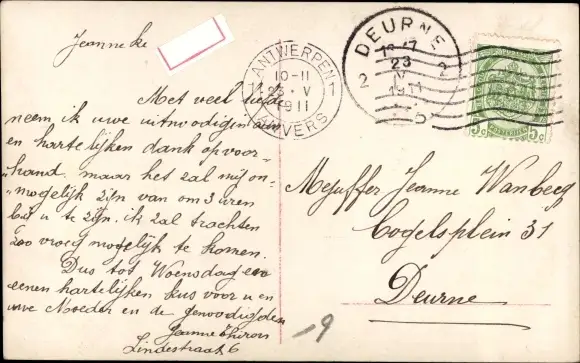 Jeanneke
Met veel liefde
neem ik uwe uitnoodiging aan
en hartelijken dank op voor-
"hand. maar het zal mij on-
"mogelijk zijn van om 3 uren
bij u te zijn. ik zal trachten
zoo vroeg mogelijk te komen.
Dus tot Woensdag
eenen hartelijken kus voor u en
uwe Moeder en de genoodigden
Jeanne
Lindestraat 6
ANTWERPEN
1 10-11 1
23 · V
1911
ANVERS
DEURNE
23
2 V 2
1911
5c 5c
Mejuffer Jeanne
Cogelsplein 31
Deurne